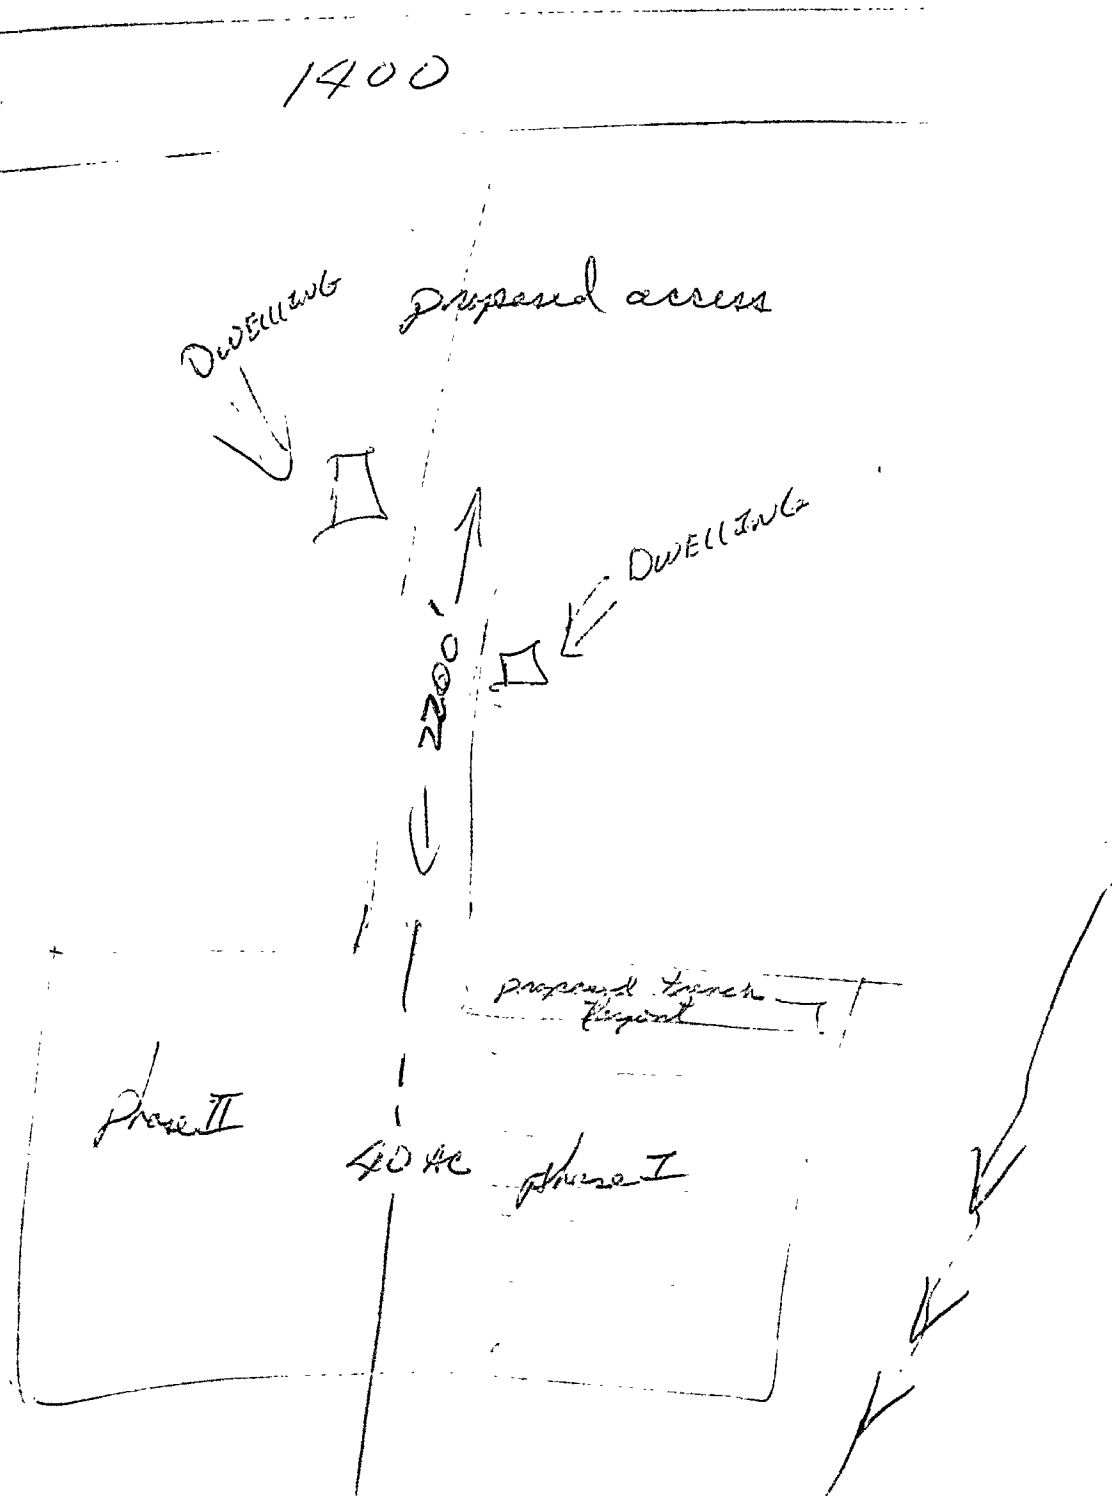 1400
DWELLING
proposed access
DWELLING
2200'
proposed trench
layout
Phase II
40 AC
phase I